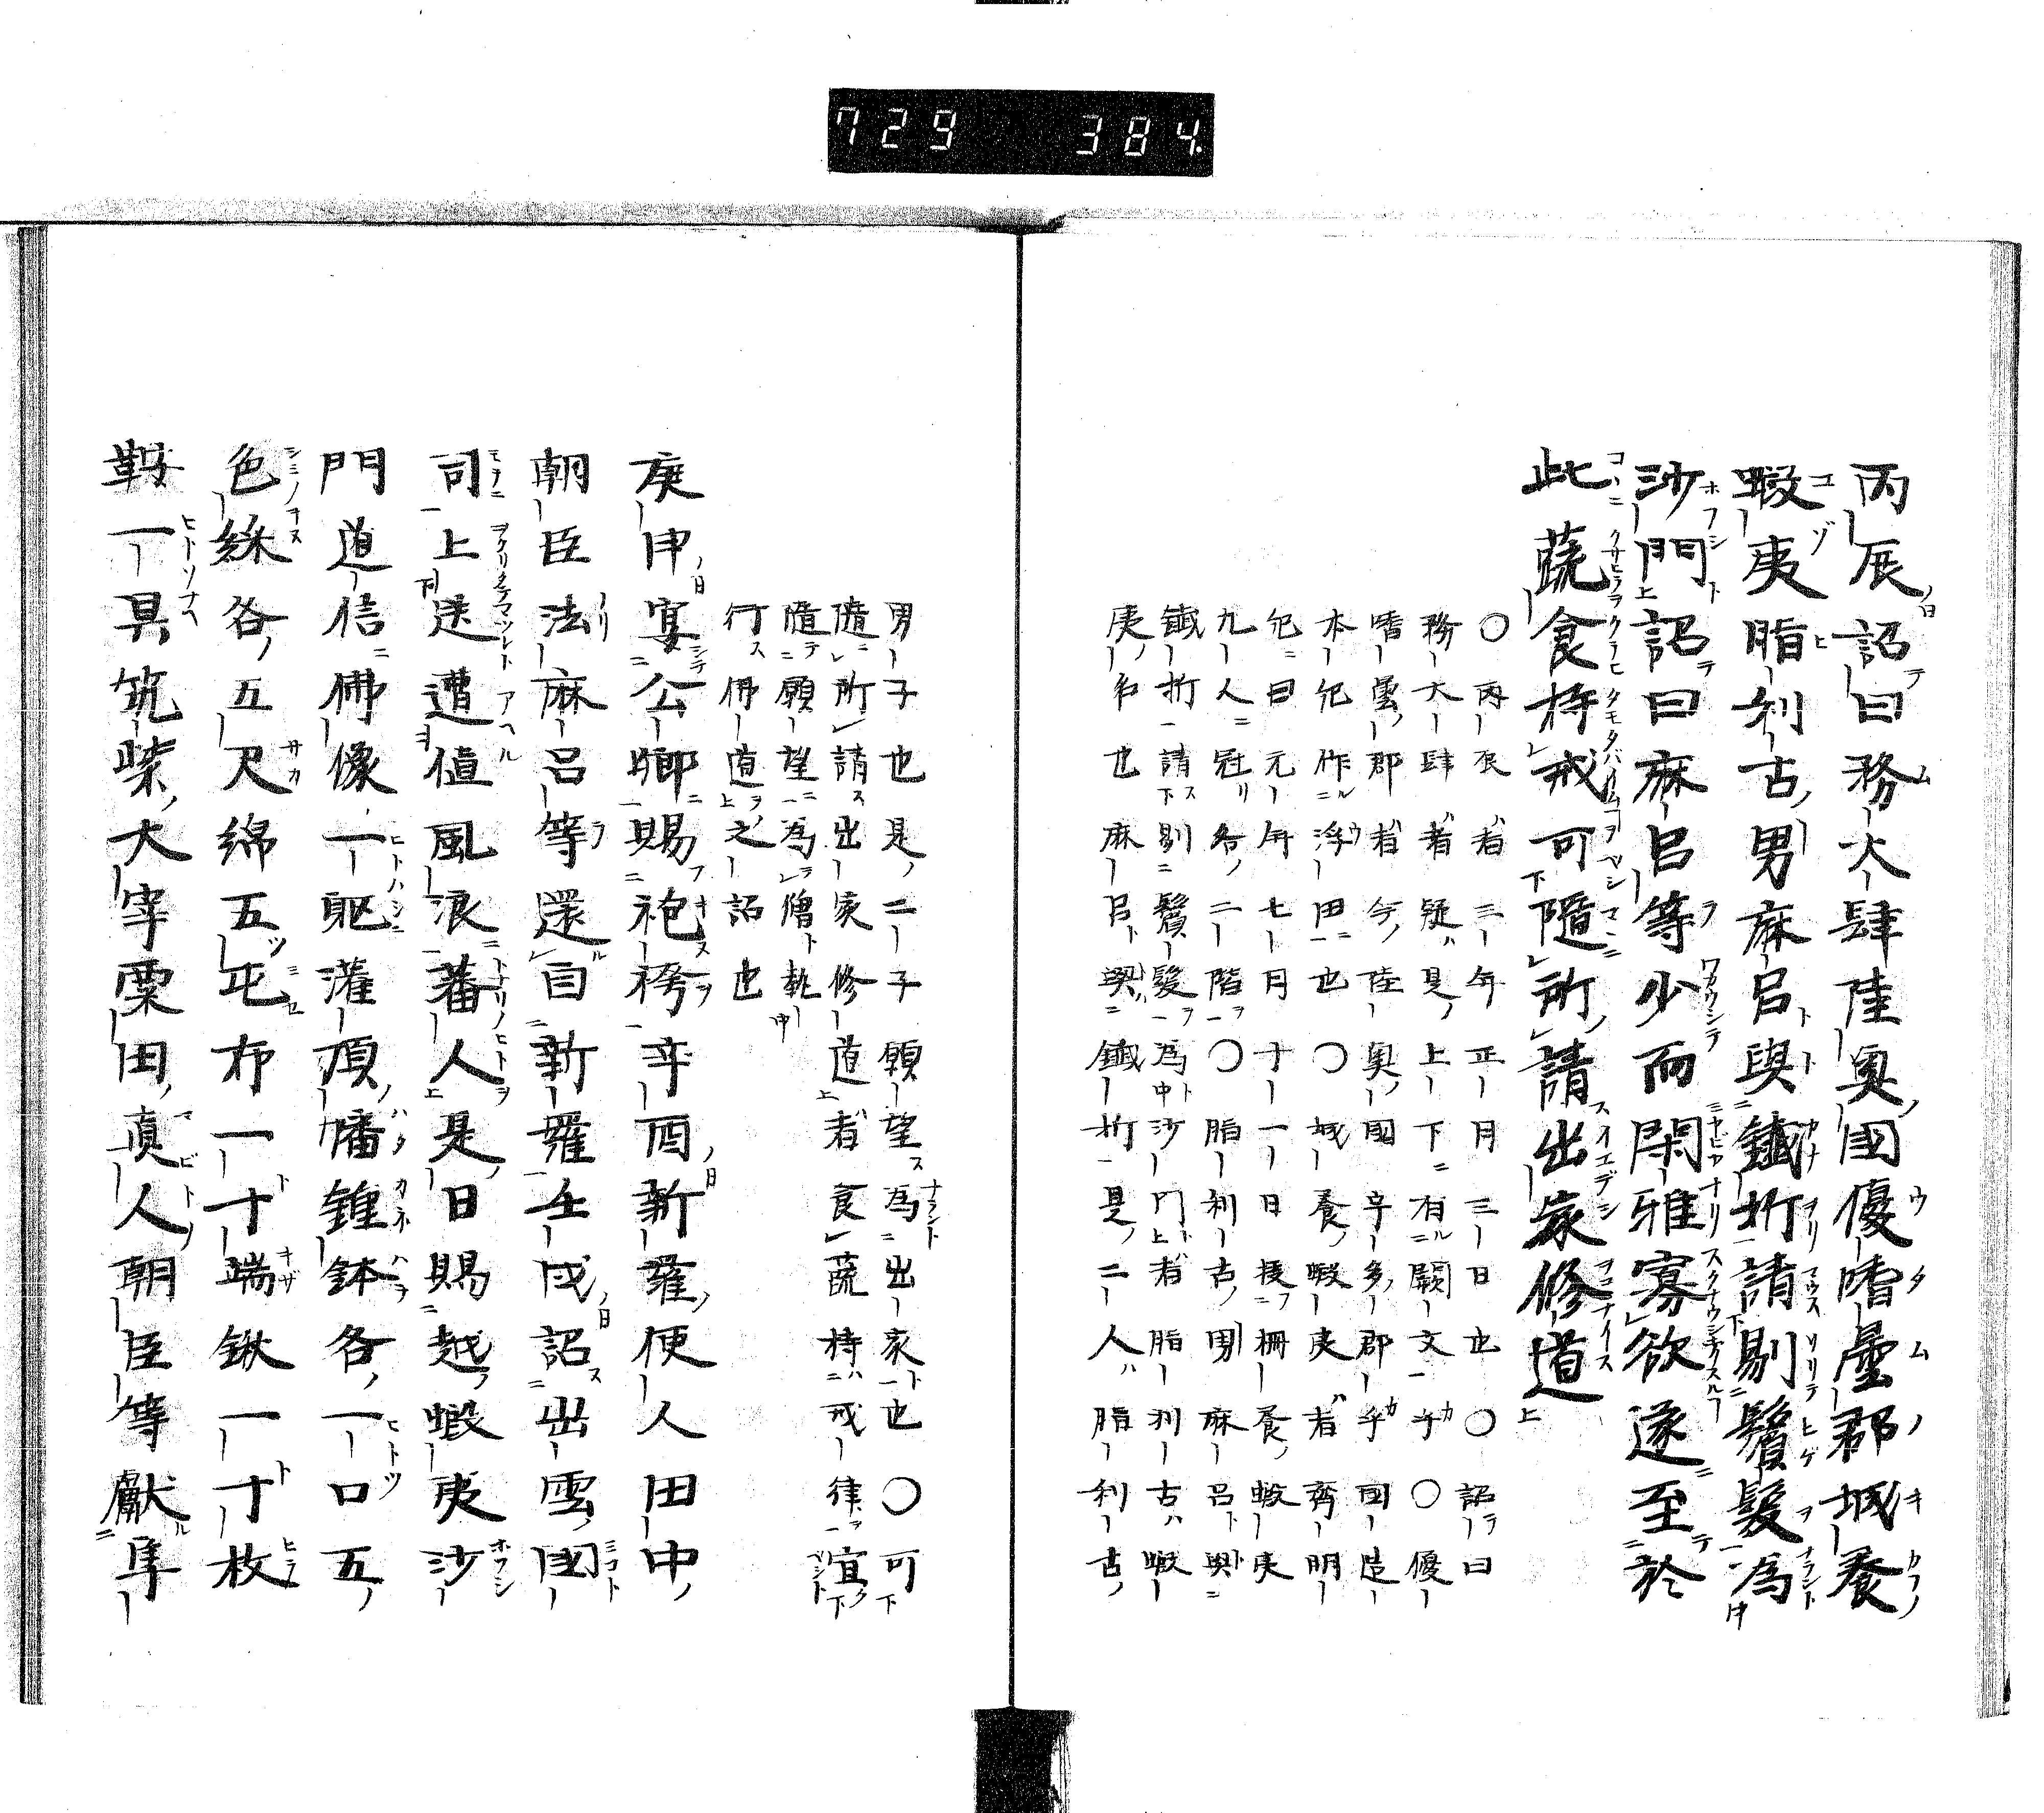 729 384.
丙辰詔曰務大肆陸奥國優𡺸曇郡城養
蝦夷脂利古男麻呂與鐵折請剔鬢髮為
沙門詔曰麻呂等少而閑雅寡欲遂至於
此蔬食持戒可隨所請出家修道
○丙辰者三年正月三日也○詔曰
務大肆者疑是上下有闕文乎○優
𡺸曇郡者今陸奥國辛多郡乎國造
本紀作浮田也○城養蝦夷者齊明
紀曰元年七月十一日授柵養蝦夷
九人冠各二階○脂利古男麻呂與
鐵折請剔鬢髮為沙門者脂利古蝦
夷名也麻呂與鐵折是二人脂利古
男子也是二子願望為出家也○可
隨所請出家修道者食蔬持戒律宜
隨願望為僧執
行佛道之詔也
庚申宴公卿賜袍袴辛酉新羅使人田中
朝臣法麻呂等還自新羅壬戌詔出雲國
司上送遭値風浪蕃人是日賜越蝦夷沙
門道信佛像一軀灌頂幡鍾鉢各一口五
色綵各五尺綿五屯布一十端鍬一十枚
鞍一具筑柴大宰粟田真人朝臣等獻隼